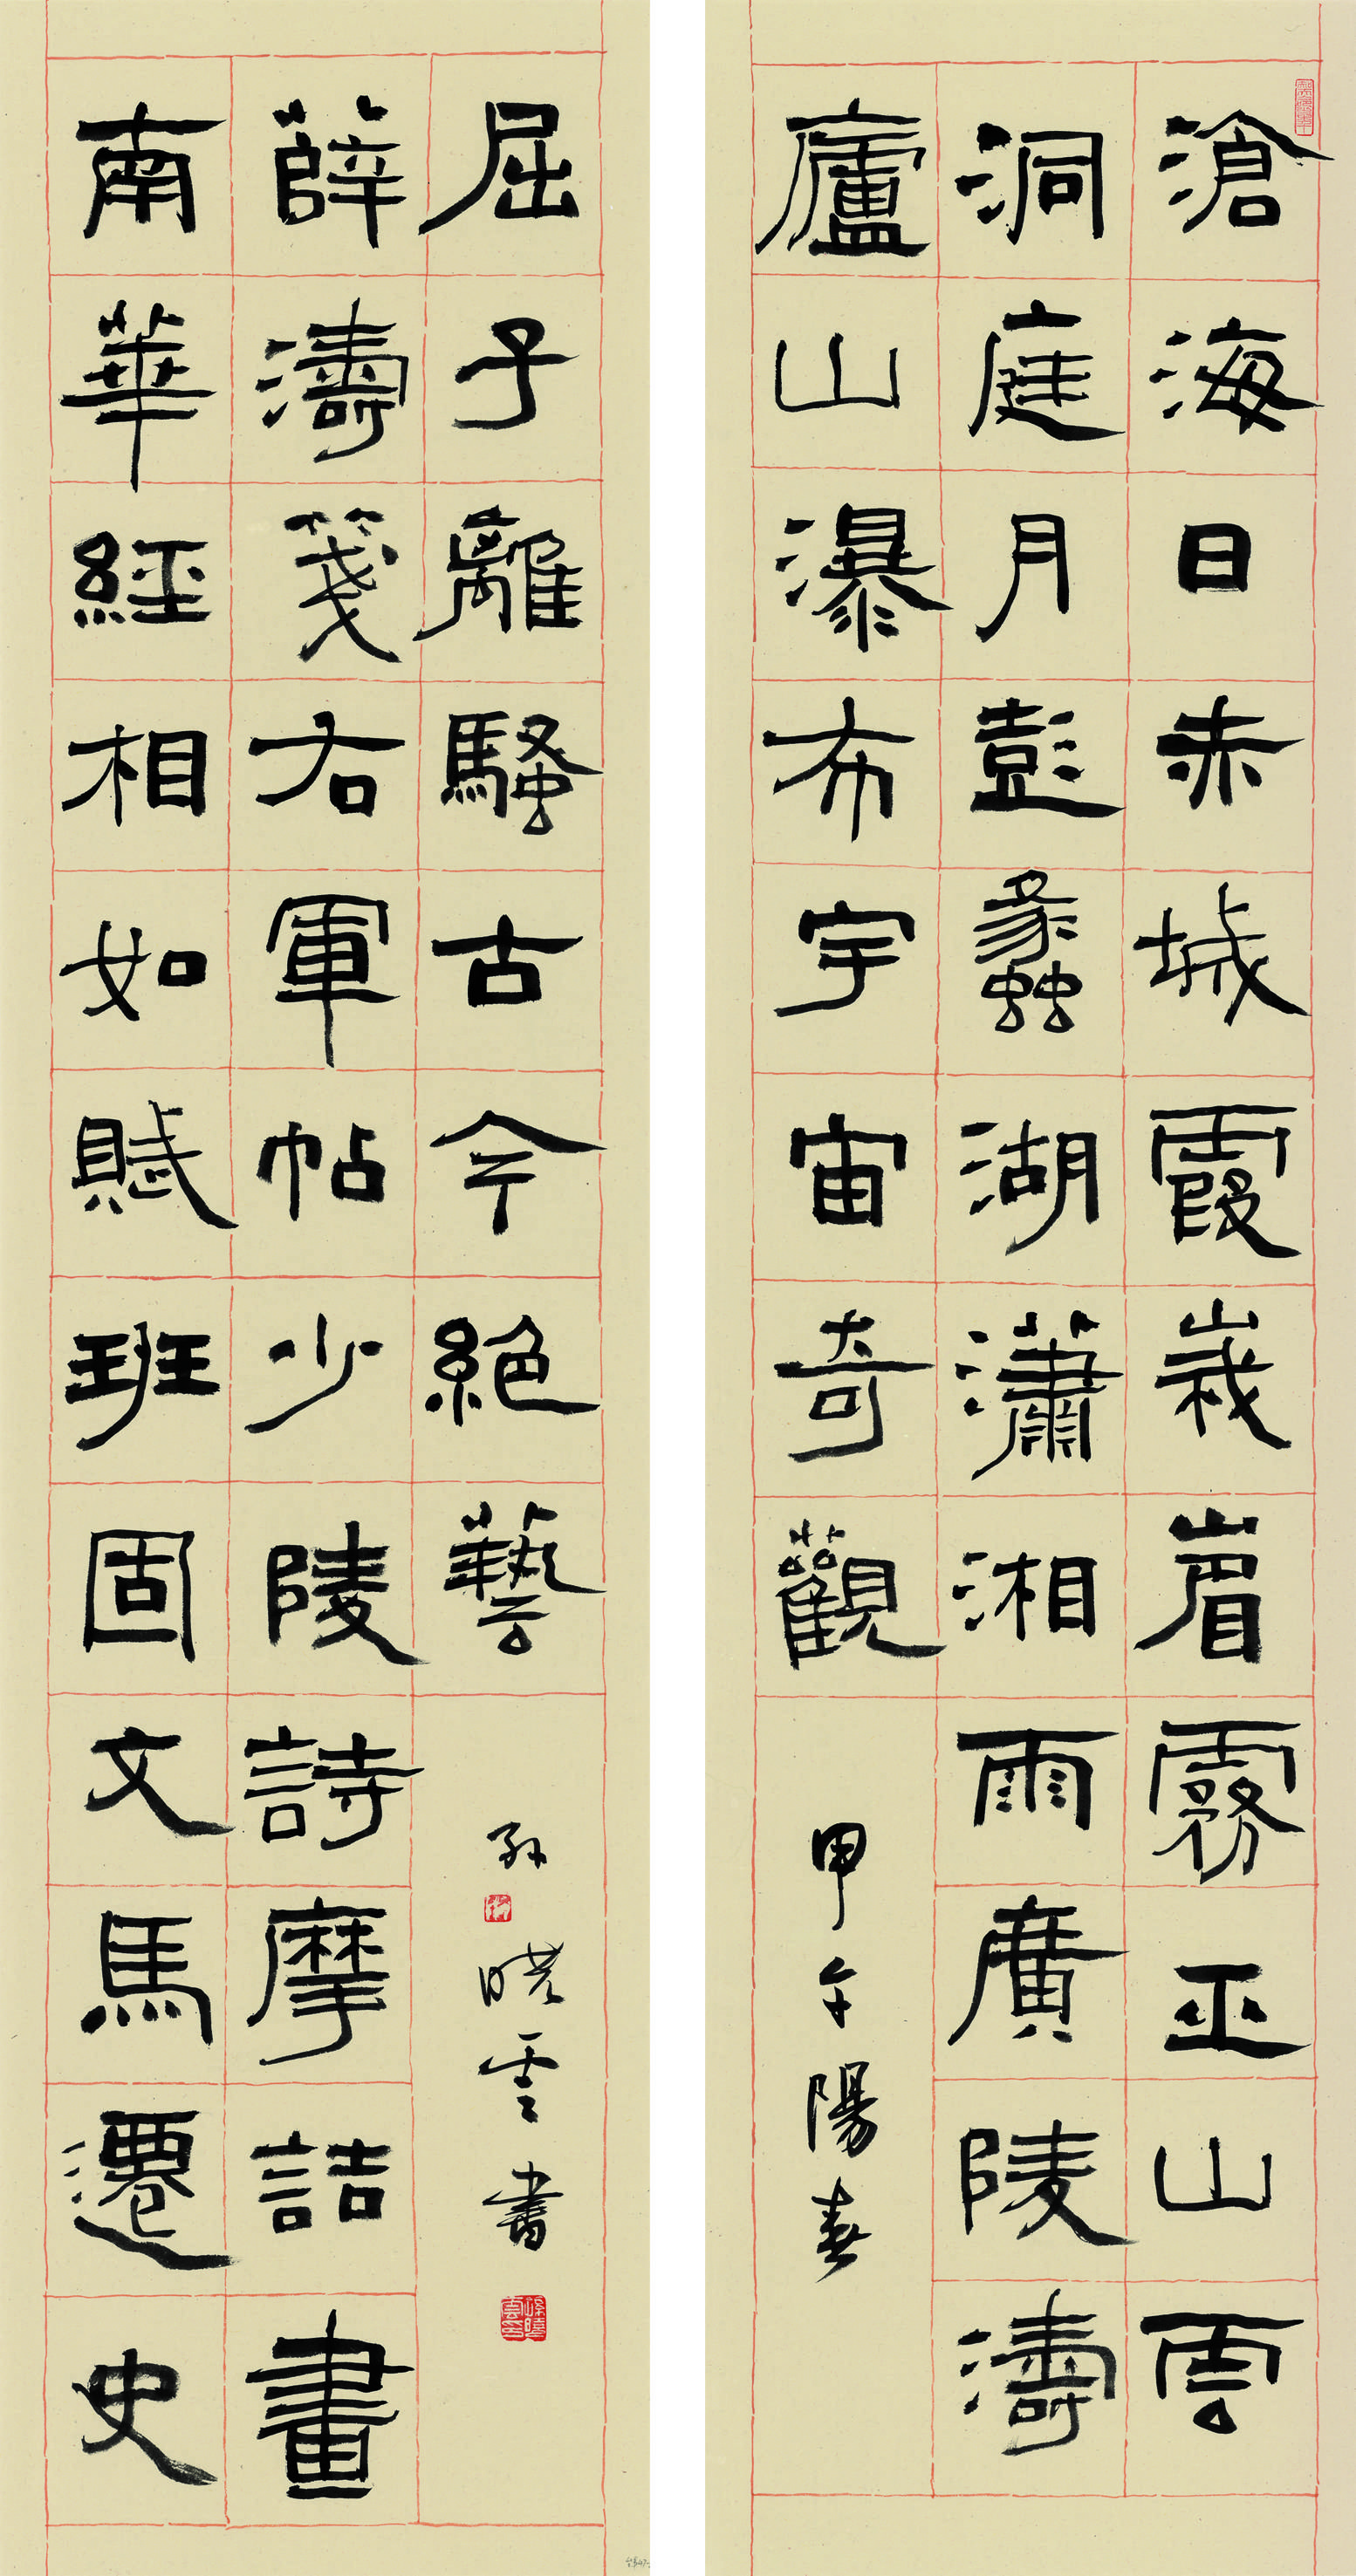 滄海日赤城霞峩嵋霧巫山雲
洞庭月彭蠡湖瀟湘雨廣陵濤
廬山瀑布宇宙奇觀
甲午陽春
南華經相如賦班固文馬遷史
薛濤箋右軍帖少陵詩摩詰畫
屈子離騷古今絕藝
孫曉雲書
孫曉雲印